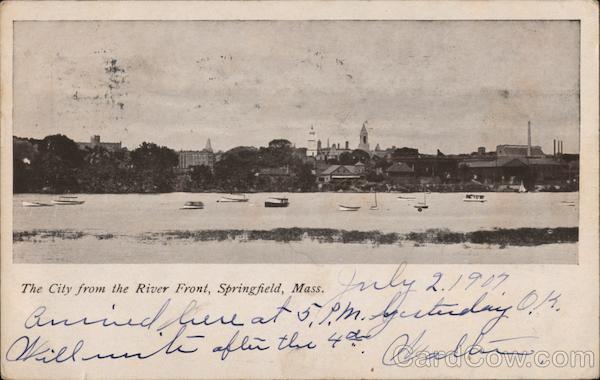 The City from the River Front, Springfield, Mass.
July 2. 1907
Arrived here at 5, P.M. Yesterday O.K.
Will write after the 4th.
CardCow.com